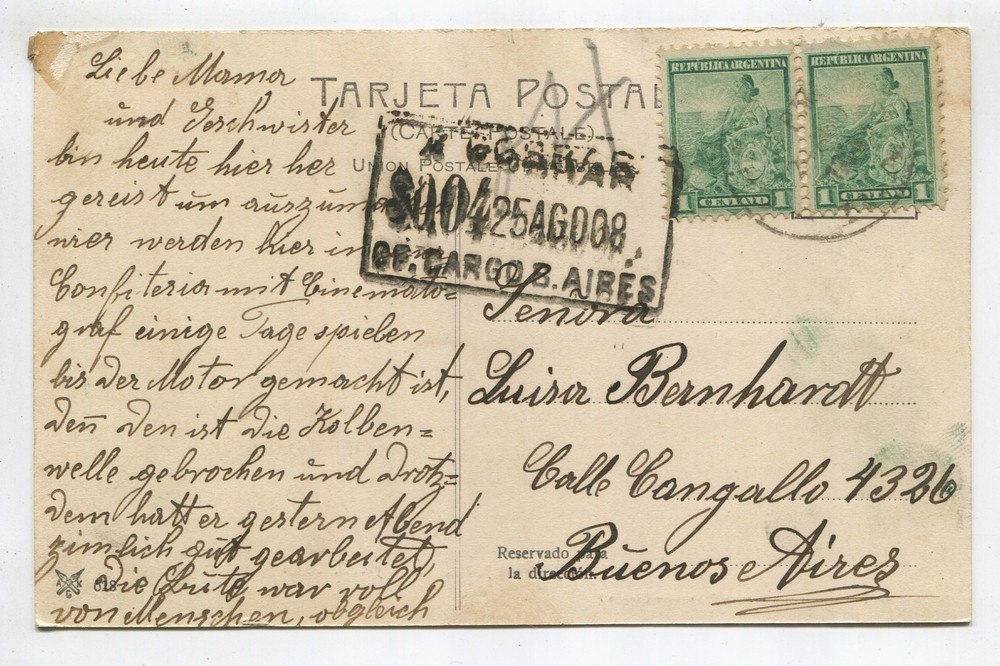 TARJETA POSTAL
(CARTE POSTALE)
UNION POSTALE
REPÚBLICA ARGENTINA
1 CENTAVO 1
REPÚBLICA ARGENTINA
1 CENTAVO 1
A COBRAR
$004 25AGO08
OF. CARGO B. AIRES
Liebe Mama
und Geschwister
bin heute hier her
gereist um
wier werden hier in
Confiteria mit Cinemato=
graf einige Tage spielen
bis der Motor gemacht ist,
den̄ den ist die Kolben=
welle gebrochen und drotz=
dem hatt er gestern Abend
zimlich gut gearbeitet,
die Bute war voll
von Menschen, obgleich
Senora
Luisa Bernhardt
Calle Cangallo 4326
Buenos Aires
Reservado para
la dirección.